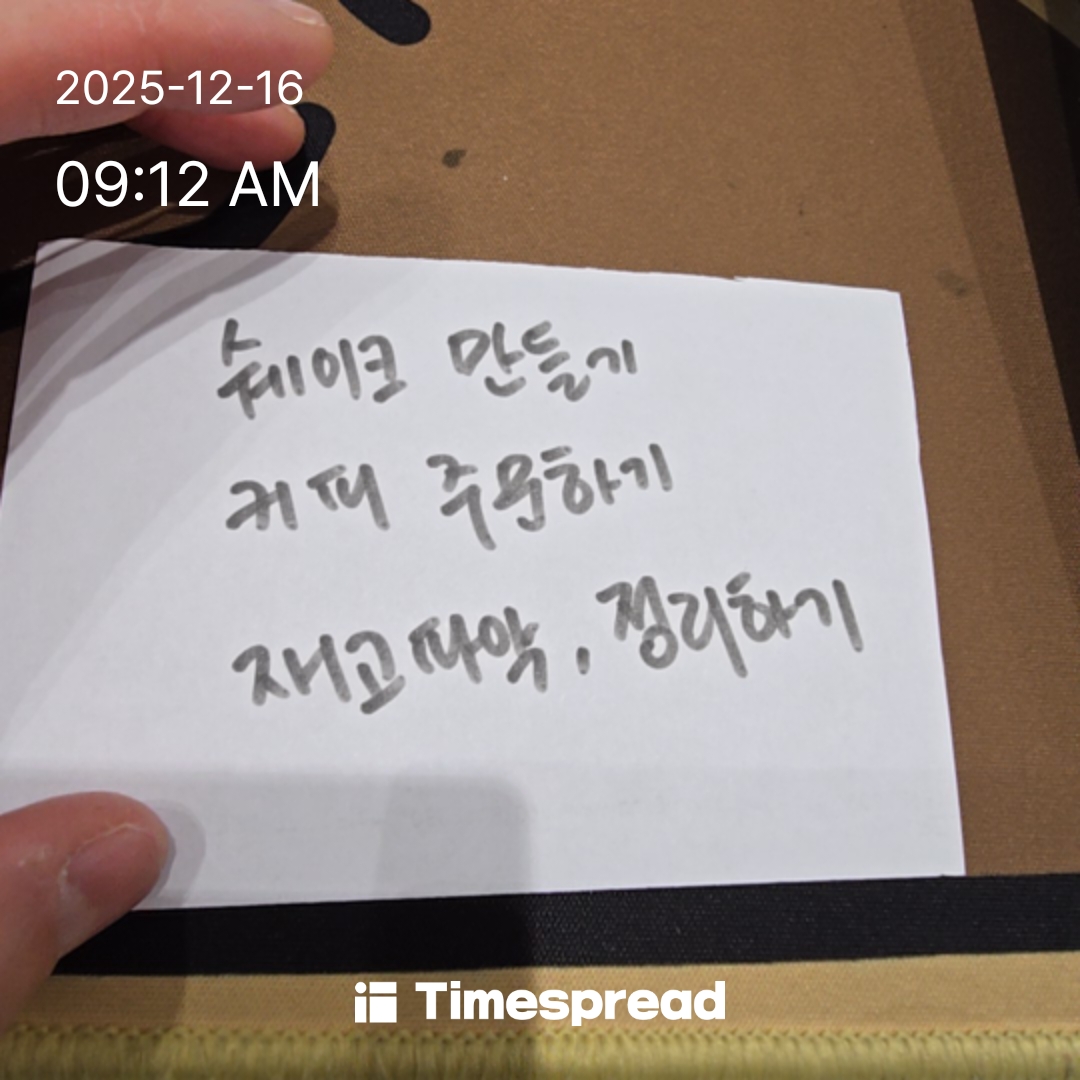 2025-12-16
09:12 AM
쉐이크 만들기
커피 주문하기
재고파악, 정리하기
Timespread